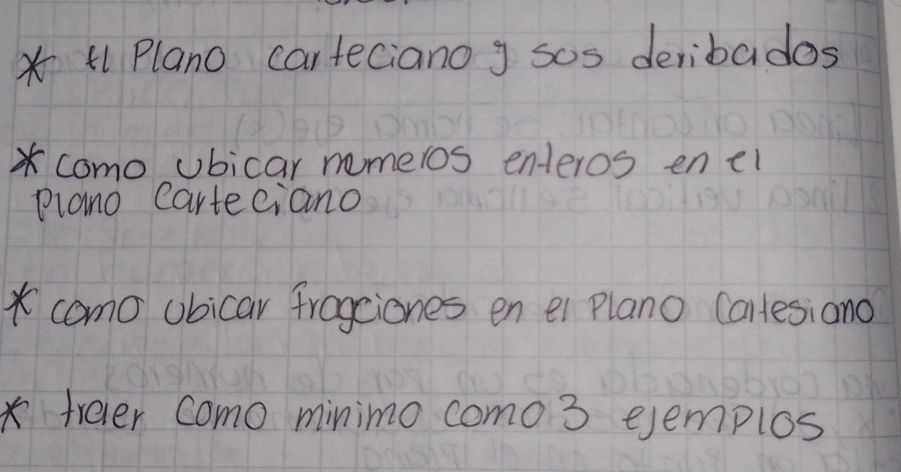 * El Plano carteciano y sus deribados
* como ubicar numeros enteros en el
plano Carteciano
* como ubicar fragciones en el Plano Cartesiano
* traer como minimo como 3 ejemplos